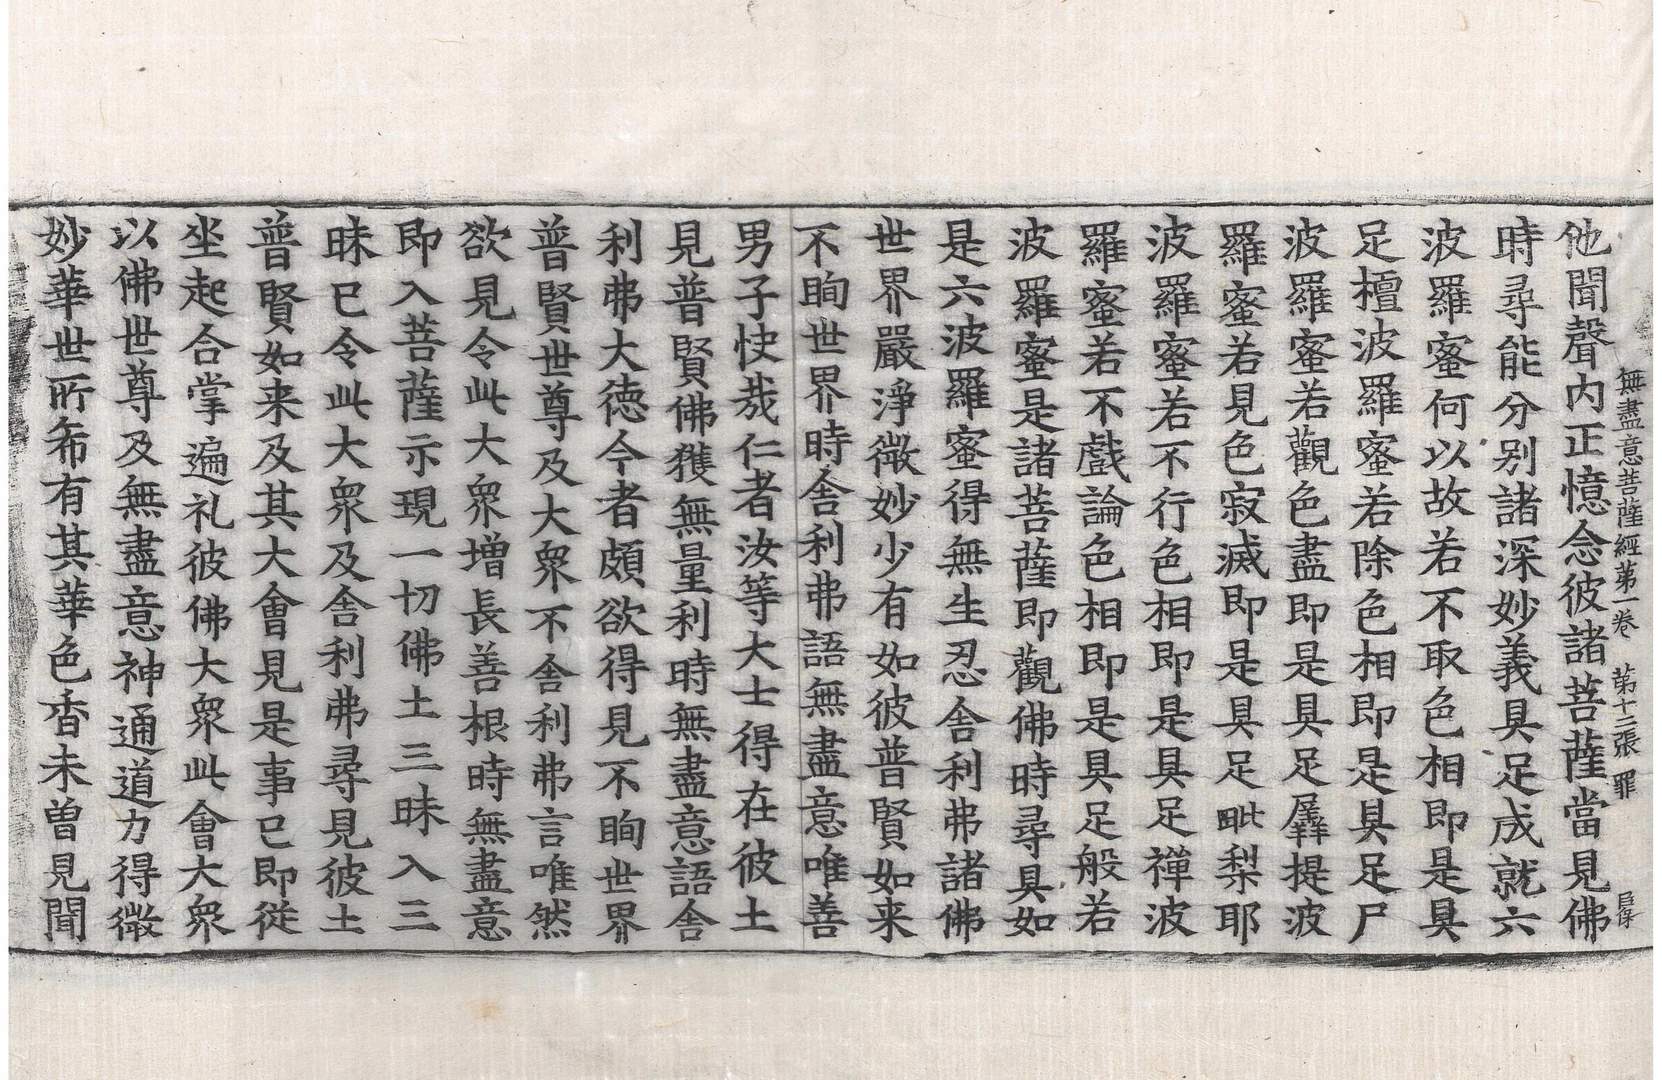 無盡意菩薩經第一卷 第十二張 罪
他聞聲內正憶念彼諸菩薩當見佛
時尋能分別諸深妙義具足成就六
波羅蜜何以故若不取色相即是具
足檀波羅蜜若除色相即是具足尸
波羅蜜若觀色盡即是具足羼提波
羅蜜若見色寂滅即是具足毗梨耶
波羅蜜若不行色相即是具足禪波
羅蜜若不戲論色相即是具足般若
波羅蜜是諸菩薩即觀佛時尋具如
是六波羅蜜得無生忍舍利弗諸佛
世界嚴淨微妙少有如彼普賢如来
不眴世界時舍利弗語無盡意唯善
男子快哉仁者汝等大士得在彼土
見普賢佛獲無量利時無盡意語舍
利弗大德今者頗欲得見不眴世界
普賢世尊及大衆不舍利弗言唯然
欲見令此大衆增長善根時無盡意
即入菩薩示現一切佛土三昧入三
昧已令此大衆及舍利弗尋見彼土
普賢如来及其大會見是事已即從
坐起合掌遍礼彼佛大衆此會大衆
以佛世尊及無盡意神通道力得微
妙華世所希有其華色香未曾見聞